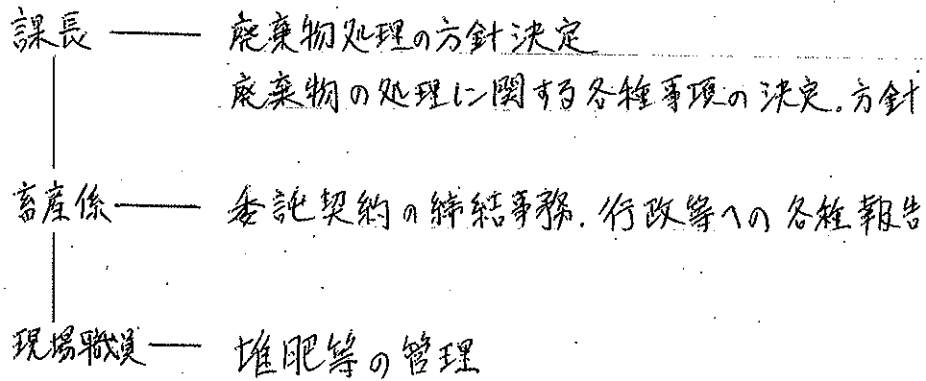 課長 廃棄物処理の方針決定
廃棄物の処理に関する各種事項の決定、方針
畜産係 委託契約の締結事務、行政等への各種報告
現場職員 堆肥等の管理